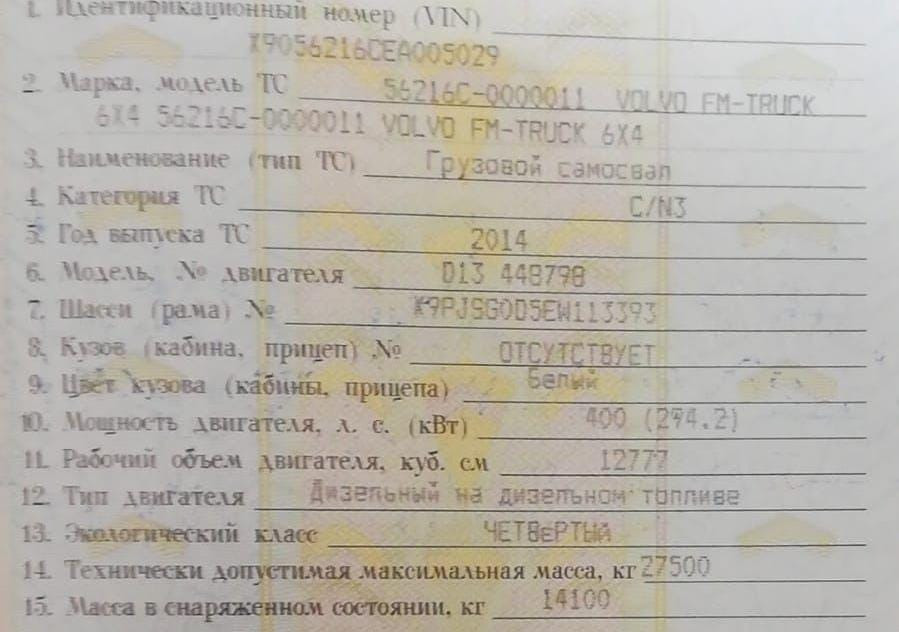 1. Идентификационный номер (VIN)
X9056216CEA005029
2. Марка, модель ТС 56216C-0000011 VOLVO FM-TRUCK
6X4 56216C-0000011 VOLVO FM-TRUCK 6X4
3. Наименование (тип ТС) Грузовой самосвал
4. Категория ТС C/N3
5. Год выпуска ТС 2014
6. Модель, № двигателя D13 448798
7. Шасси (рама) № X9PJSG0D5EW113393
8. Кузов (кабина, прицеп) № ОТСУТСТВУЕТ
9. Цвет кузова (кабины, прицепа) Белый
10. Мощность двигателя, л. с. (кВт) 400 (294.2)
11. Рабочий объем двигателя, куб. см 12777
12. Тип двигателя Дизельный на дизельном топливе
13. Экологический класс ЧЕТВЕРТЫЙ
14. Технически допустимая максимальная масса, кг 27500
15. Масса в снаряженном состоянии, кг 14100